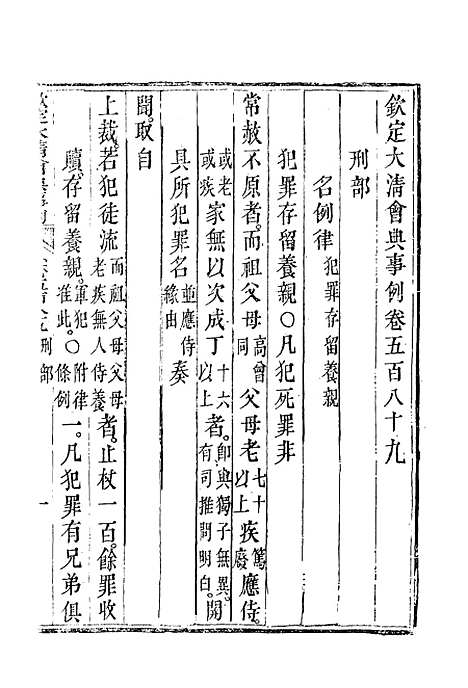 欽定大清會典事例卷五百八十九
刑部
名例律犯罪存留養親
犯罪存留養親〇凡犯死罪非
常赦不原者。而祖父母高曾同父母老七十以上疾篤廢應侍。
或老或疾家無以次成丁十六以上者。即與獨子無異。有司推問明白。開
具所犯罪名並應侍緣由奏
聞。取自
上裁。若犯徒流而祖父母父母老疾無人侍養者。止杖一百。餘罪收
贖。存留養親。軍犯准此。〇附律條例一。凡犯罪有兄弟俱
欽定大清會典事例
刑部
一